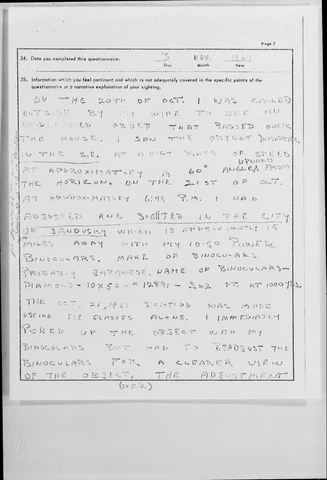 Page 7
34. Date you completed this questionnaire: 3 NOV. 1967
Day Month Year
35. Information which you feel pertinent and which is not adequately covered in the specific points of the
questionnaire or a narrative explanation of your sighting.
ON THE 20TH OF OCT. I WAS CALLED
OUTSIDE BY MY WIFE TO SEE AN
OBJECT THAT PASSED OVER
THE HOUSE. I SAW THE OBJECT DISAPPEAR
IN THE S.E. AT A HIGH RATE OF SPEED
AT APPROXIMATLEY A 60° ANGLE UPWARD FROM
THE HORIZON. ON THE 21ST OF OCT.
AT APPROXIMATLEY 6:45 P.M. I HAD
ADJUSTED AND SIGHTED IN THE CITY
OF SANDUSKY WHICH IS APPROXIMATLY 15
MILES AWAY WITH MY 10-50 POWER
BINOCULARS. MAKE OF BINOCULARS
PROBABLY JAPANESE, NAME OF BINOCULARS-
DIAMOND - 10X50 - 262 FT AT 1000 YDS.
THE OCT. 21, 1967 SIGHTING WAS MADE
USING EYE GLASSES ALONE. I IMMEDIATLY
PICKED UP THE OBJECT WITH MY
BINOCULARS BUT HAD TO READJUST THE
BINOCULARS FOR A CLEARER VIEW
OF THE OBJECT. THE ADJUSTMENT
(OVER)